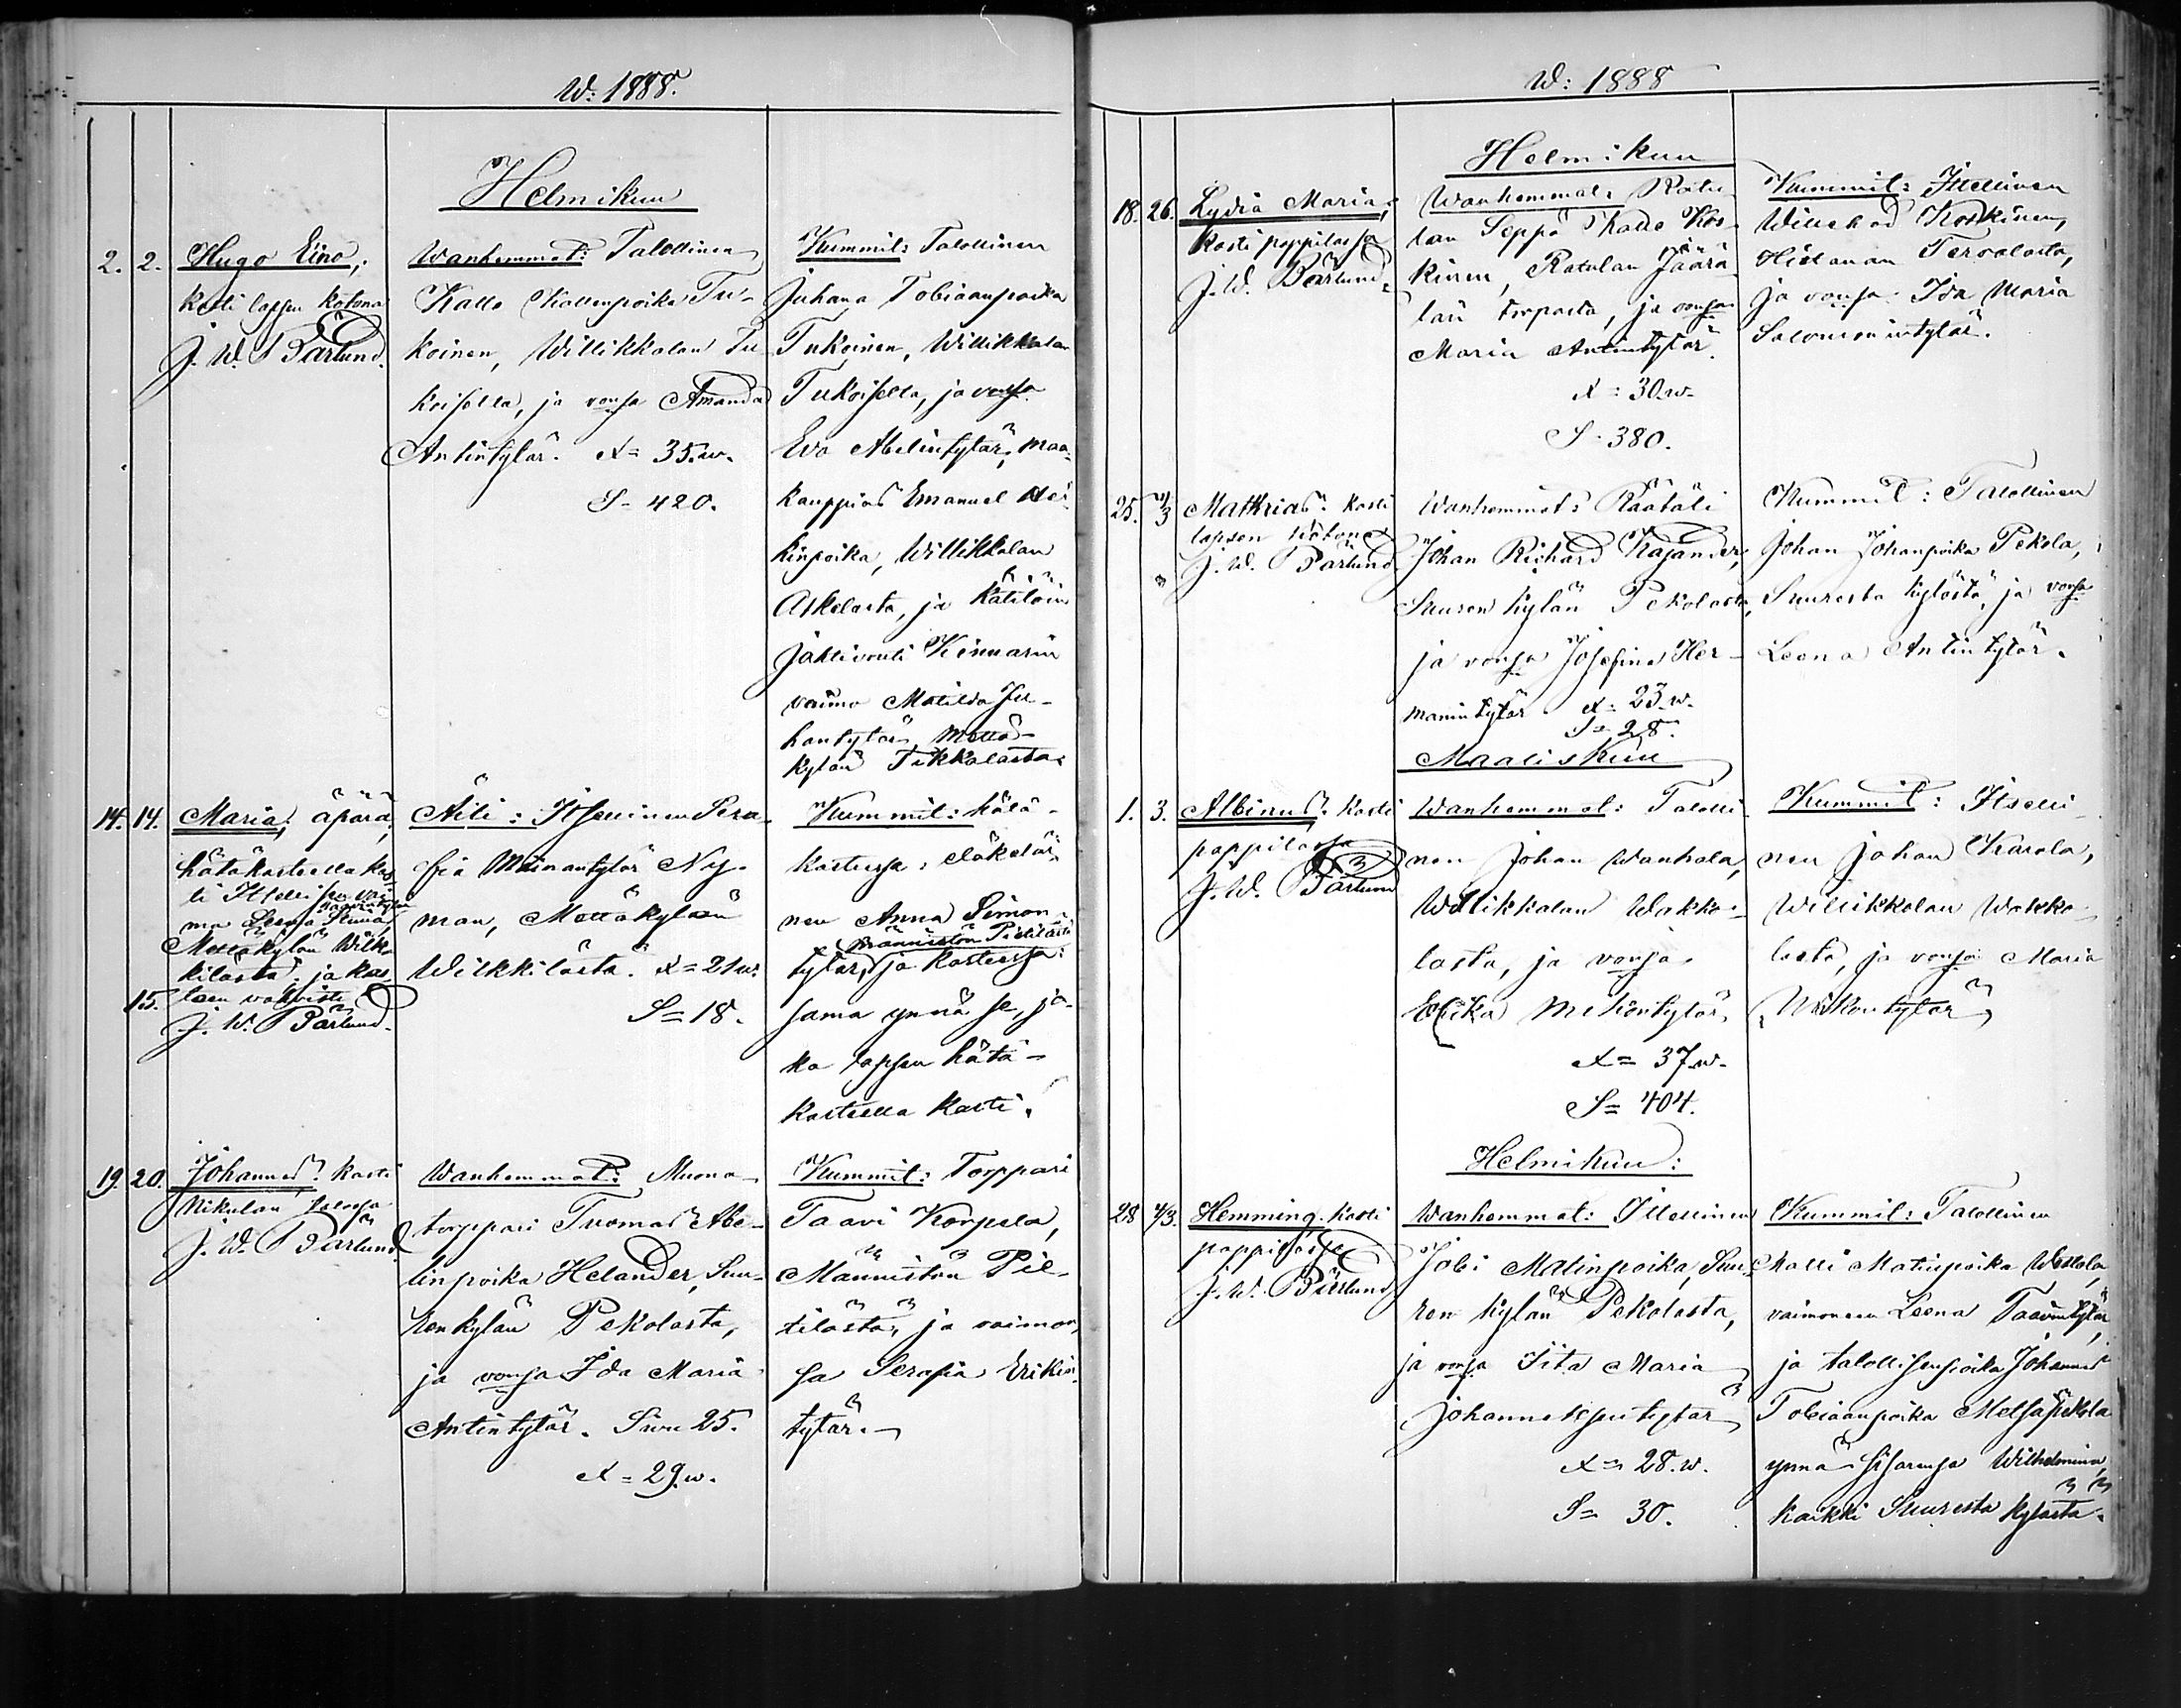 W: 1888.
Helmikuu
2. 2. Hugo Eino;
kasti lapsen kotona
J. W. Pärlund.
Wanhemmat: Talollinen
Kalle Kallenpoika Tu-
koinen, Willikkalan Tu-
koisella, ja vonsa Amanda
Antintytär. X= 35.w.
S= 420.
Kummit: Talollinen
Juhana Tobiaanpoika
Tukoinen, Willikkalan
Tukoisella, ja vonsa
Eva Abelintytär, maa-
kauppias Emanuel Hei-
kinpoika, Willikkalan
Askolasta, ja Kätilöin
Jahtivouti Kinnarin
vaimo Matilda Ju-
hantytär Mettä-
kylän Tikkalasta.
14. 14. Maria; äpärä,
hätäkasteella kas-
ti Itsellisen vai-
mo Leena Stiina
Mettäkylän Wilk-
kilästä, ja kas-
15. teen vahvisti
J. W. Pärlund.
Äiti: Itsellinen Sera-
fia Manantytär Ny-
man, Mettäkylän
Wilkkilästä. X=21w.
S=18.
Kummit: hätä-
kasteessa: eläkeläi-
nen Anna Simon-
Männistön Pietilästä
tytär, ja kasteessa:
sama ynnä se, jo-
ka lapsen hätä-
kasteella kasti.
19. 20. Johannes. kasti
Nikulan talossa
J. W. Pärlund
Wanhemmat: Muona-
torppari Tuomas Abe-
linpoika Helander, Suu-
renkylän Pekolasta,
ja vonsa Ida Maria
Antintytär. Sivu 25.
X=29.w.
Kummit: Torppari
Taavi Korpela,
Männistön Pie-
tilästä, ja vaimon-
sa Serafia Erikin-
tytär.
W: 1888
Helmikuu
18. 26. Lydia Maria;
kasti pappilassa
J. W. Pärlund.
Wanhemmat: Ratu-
lan Seppä Kalle Kos-
kinen, Ratulan Jäärä-
län torpasta, ja vonsa
Maria Antintytär.
X=30.w.
S=380.
Kummit: Itsellinen
Willehad Koskinen,
Hietanan Tervalasta,
ja vonsa Ida Maria
Salomonintytär.
25. 4/3 Mathias. kasti
lapsen kotona
J. W. Pärlund
Wanhemmat: Räätäli
Johan Richard Kajander,
Suuren kylän Pekolasta,
ja vonsa Josefina Her-
manintytär. X=23.w.
S=28.
Kummit: Talollinen
Johan Johanpoika Pekola,
Suuresta kylästä, ja vonsa
Leena Antintytär.
Maaliskuu
1. 3. Albinus. kasti
pappilassa
J. W. Pärlund
Wanhemmat: Talolli-
nen Johan Wanhala,
Willikkalan Wakko-
lasta, ja vonsa
Erika Mikontytär,
X= 37.w.
S= 404.
Kummit: Itselli-
nen Johan Karola,
Willikkalan Wakko-
lasta, ja vonsa Maria
Mikontytär
Helmikuu:
28 4/3. Hemming. kasti
pappilassa
J. W. Pärlund
Wanhemmat: Itsellinen
Jobi Matinpoika, Suu-
ren kylän Pekolasta,
ja vonsa Iita Maria
Johanneksentytär
X= 28.w.
S= 30.
Kummit: Talollinen
Matti Matinpoika
vaimoneen Leena Taavintytär,
ja talollisenpoika Johannes
Tobiaanpoika Metsäpekola
ynnä sisarensa Wilhelmina,
kaikki Suuresta kylästä.